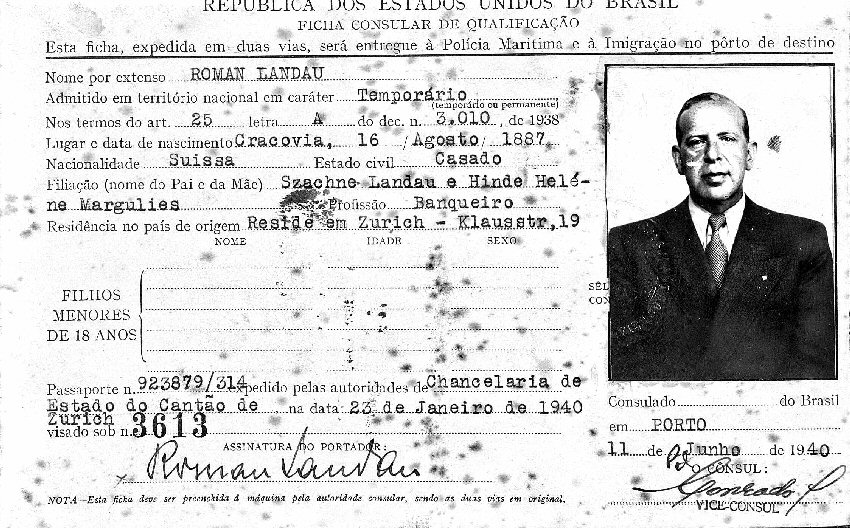 REPÚBLICA DOS ESTADOS UNIDOS DO BRASIL
FICHA CONSULAR DE QUALIFICAÇÃO
Esta ficha, expedida em duas vias, será entregue à Polícia Marítima e à Imigração no pôrto de destino
Nome por extenso ROMAN LANDAU
Admitido em território nacional em caráter Temporário
(temporário ou permanente)
Nos termos do art. 25 letra A do dec. n. 3.010, de 1938
Lugar e data de nascimento Cracovia, 16 / Agosto / 1887
Nacionalidade Suissa Estado civil Casado
Filiação (nome do Pai e da Mãe) Szachne Landau e Hinde Helé-
ne Margulies Profissão Banqueiro
Residência no país de origem Reside em Zurich - Klausstr, 19
NOME IDADE SEXO
FILHOS
MENORES
DE 18 ANOS
Passaporte n. 923879/314 expedido pelas autoridades de Chancelaria de
Estado do Cantão de na data 23 de Janeiro de 1940
Zurich
visado sob n. 3613
ASSINATURA DO PORTADOR:
Roman Landau
NOTA—Esta ficha deve ser preenchida à máquina pela autoridade consular, sendo as duas vias em original.
Consulado do Brasil
em PORTO
11 de Junho de 1940
O CONSUL:
VICE-CONSUL